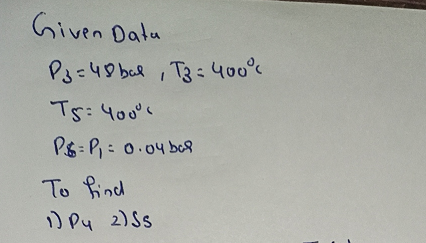 Given Data
P3 = 48 bar , T3 = 400°c
T5 = 400°c
P6 = P1 = 0.04 bar
To find
1) P4 2) S5